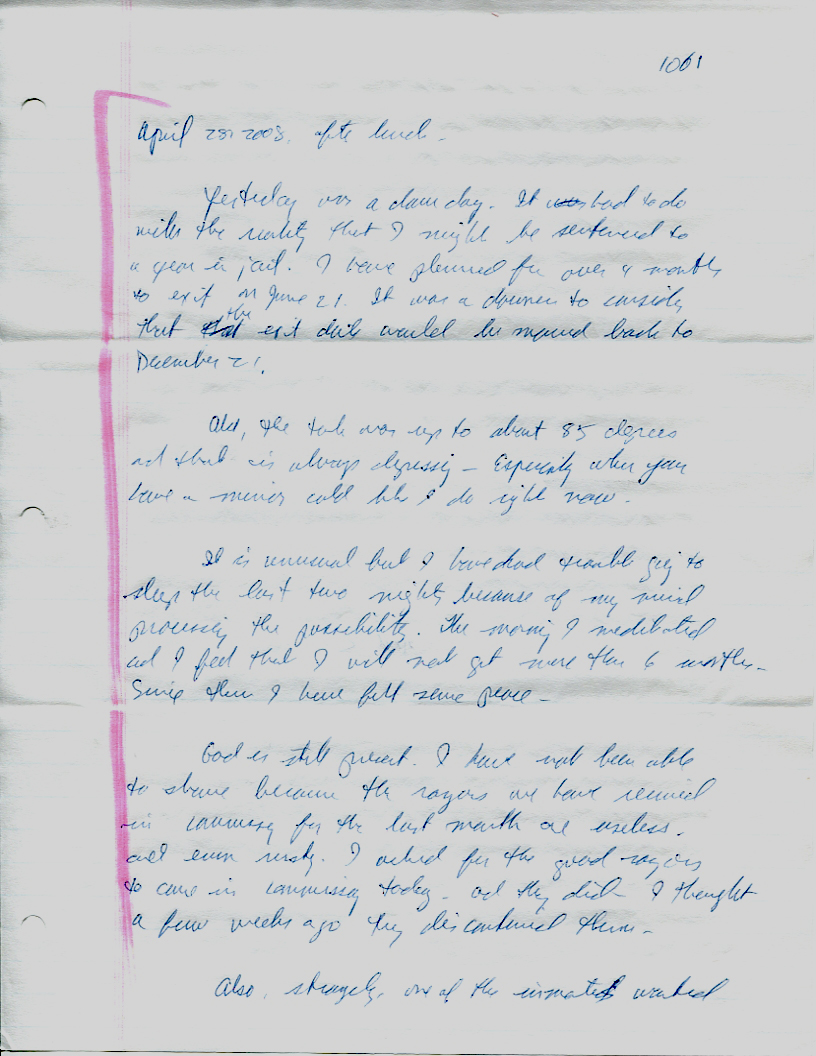 1061
April 28, 2008. after lunch.
Yesterday was a down day. It was had to do
with the reality that I might be sentenced to
a year in jail. I have planned for over 4 months
to exit on June 21. It was a downer to consider
that that the exit date would be moved back to
December 21.
Also, the tank was up to about 85 degrees
and that is always depressing - Especially when you
have a minor cold like I do right now.
It is unusual but I have had trouble going to
sleep the last two nights because of my mind
processing the possibility. The morning I meditated
and I feel that I will not get more than 6 months -
Since then I have felt some peace -
God is still present. I have not been able
to shave because the razors we have received
in commissary for the last month are useless.
and even rusty. I asked for the good razors
to come in commissary today - and they did - I thought
a few weeks ago they discontinued them -
Also, strangely, one of the inmates wanted